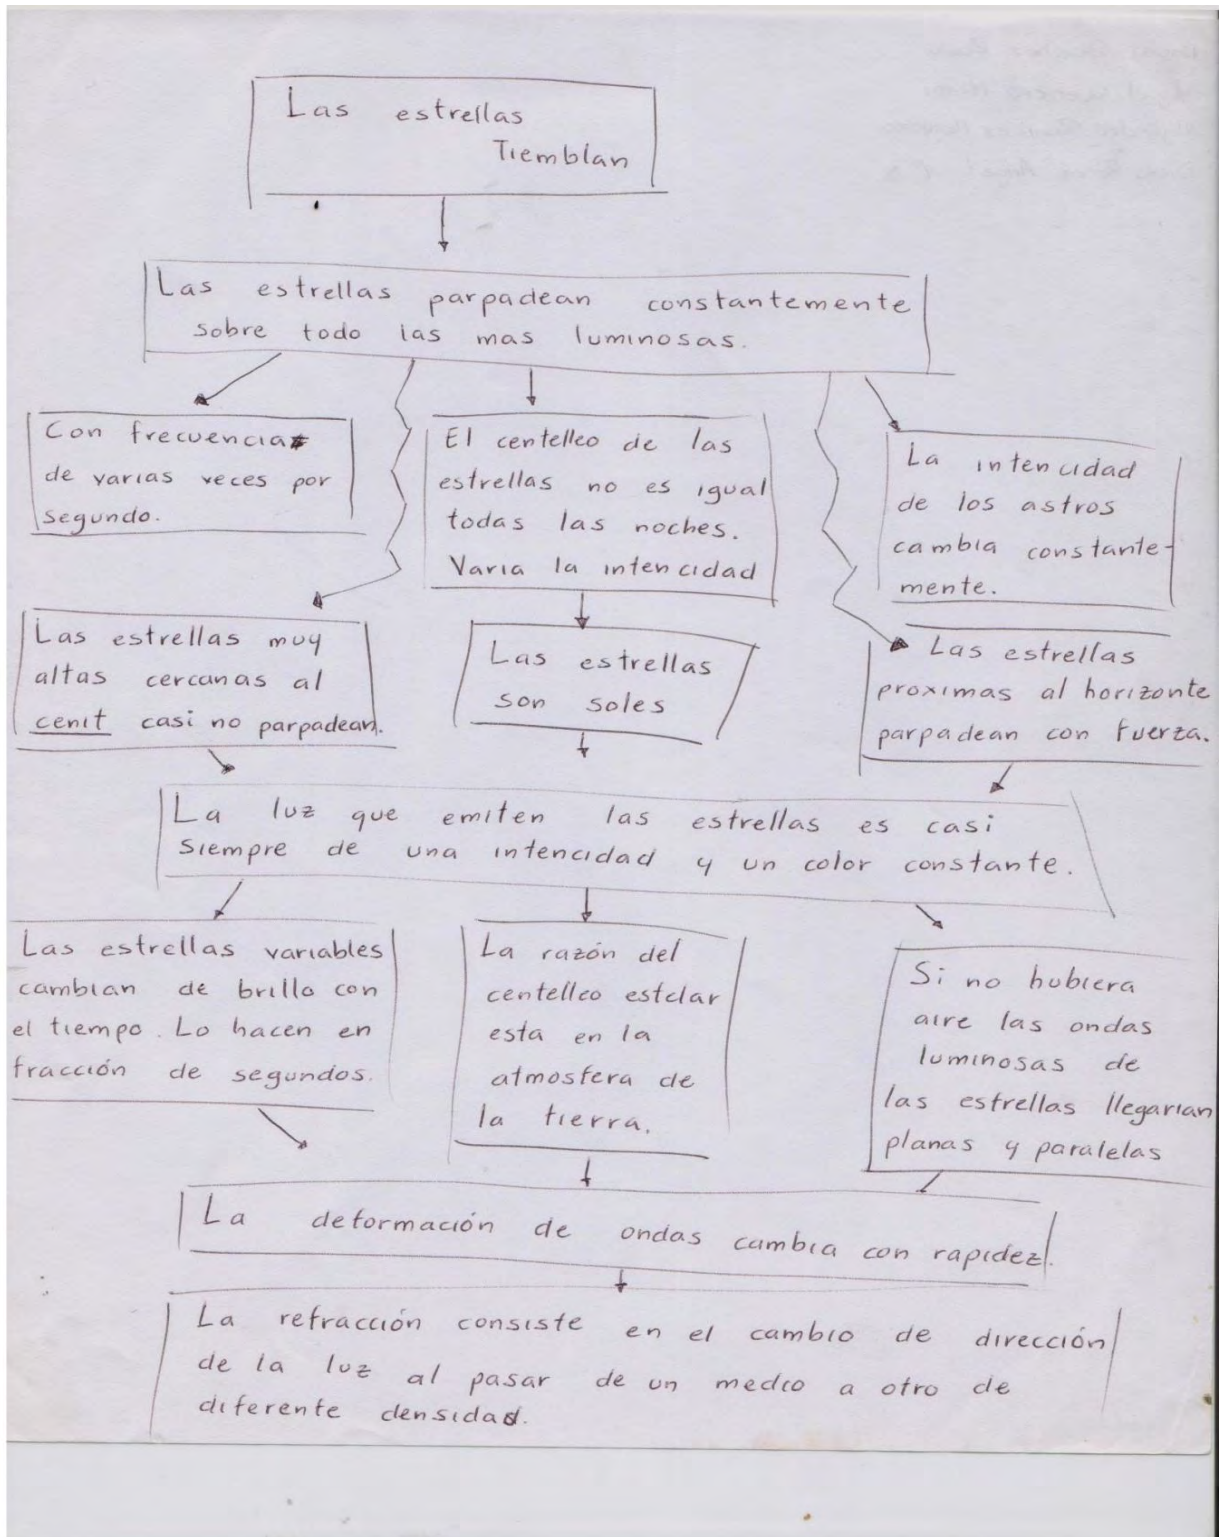 Las estrellas
Tiemblan
Las estrellas parpadean constantemente
sobre todo las mas luminosas.
Con frecuencia
de varias veces por
segundo.
El centelleo de las
estrellas no es igual
todas las noches.
Varia la intencidad
La intencidad
de los astros
cambia constante-
mente.
Las estrellas muy
altas cercanas al
cenit casi no parpadean.
Las estrellas
son soles
Las estrellas
proximas al horizonte
parpadean con fuerza.
La luz que emiten las estrellas es casi
Siempre de una intencidad y un color constante.
Las estrellas variables
cambian de brillo con
el tiempo. Lo hacen en
fracción de segundos.
La razón del
centelleo estelar
esta en la
atmosfera de
la tierra.
Si no hubiera
aire las ondas
luminosas de
las estrellas llegarian
planas y paralelas
La deformación de ondas cambia con rapidez.
La refracción consiste en el cambio de dirección
de la luz al pasar de un medio a otro de
diferente densidad.